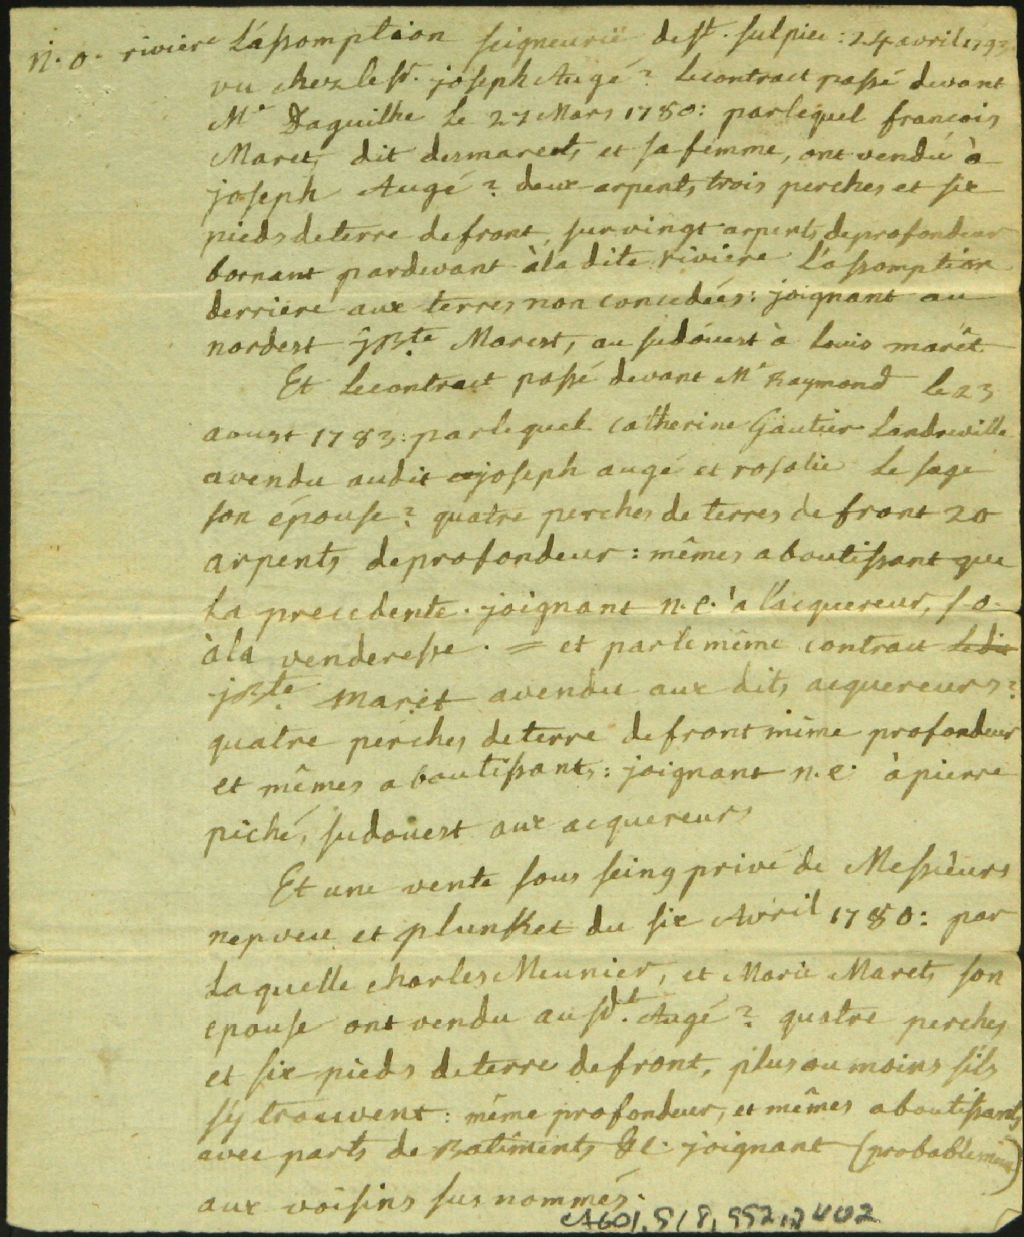 N. O. riviere L'assomption seigneurie de St. Sulpice: 24 avril 1793
vu chez le Sr. joseph Augé? le contract passé devant
Mr Daguilhe le 27 Mars 1780: par lequel francois
Maret, dit desmarets et sa femme, ont vendu à
joseph Augé? deux arpents trois perches et six
pieds de terre de front, sur vingt arpents de profondeur
bornant pardevant à la dite riviere L'assomption
derriere aux terres non concedées: joignant au
nordest jBte Marest, au sudouest à Louis marêt
Et le contract passé devant Mr Raymond le 23
aoust 1783: par lequel Catherine Gautier Landreville
a vendu audit joseph augé et rosalie Le sage
son épouse? quatre perches de terres de front 20
arpents de profondeur: mêmes aboutissant que
la precedente. joignant n.e. à l'acquereur, s.o.
à la venderesse. = et par le même contract le dit
jBte. Maret a vendu aux dits acquereurs?
quatre perches de terre de front même profondeur
et mêmes aboutissants: joignant n.e. à pierre
piché, sudouest aux acquereurs
Et une vente sous seing privé de Messieurs
nepveu et plunket du six Avril 1780: par
Laquelle charles Meunier, et Marie Marets son
epouse ont vendu au sdt. Augé? quatre perches
et six pieds de terre de front, plus ou moins s'ils
s'y trouvent: même profondeur, et mêmes aboutissants
avec parts de Batîments &c. joignant (probablement)
aux voisins susnommés.
CA601,S18,SS2,2402